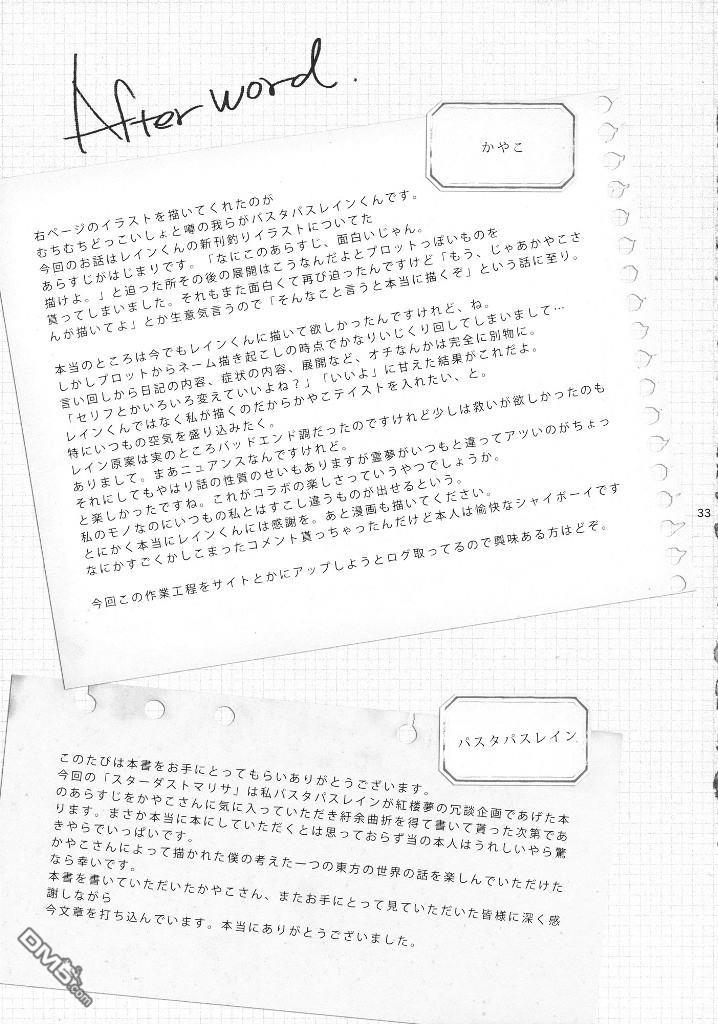 After word.
かやこ
右ページのイラストを描いてくれたのが
むちむちどっこいしょと噂の我らがパスタパスレインくんです。
今回のお話はレインくんの新刊釣りイラストについてた
あらすじがはじまりです。「なにこのあらすじ、面白いじゃん。
描けよ。」と迫った所その後の展開はこうなんだよとプロットっぽいものを
貰ってしまいました。それもまた面白くて再び迫ったんですけど「もう、じゃあかやこさ
んが描いてよ」とか生意気言うので「そんなこと言うと本当に描くぞ」という話に至り。
本当のところは今でもレインくんに描いて欲しかったんですけれど、ね。
しかしプロットからネーム描き起こしの時点でかなりいじくり回してしまいまして…
言い回しから日記の内容、症状の内容、展開など、オチなんかは完全に別物に。
「セリフとかいろいろ変えていいよね?」「いいよ」に甘えた結果がこれだよ。
レインくんではなく私が描くのだからかやこテイストを入れたい、と。
特にいつもの空気を盛り込みたく。
レイン原案は実のところバッドエンド調だったのですけれど少しは救いが欲しかったのも
ありまして。まあニュアンスなんですけれど。
それにしてもやはり話の性質のせいもありますが霊夢がいつもと違ってアツいのがちょっ
と楽しかったですね。これがコラボの楽しさっていうやつでしょうか。
私のモノなのにいつもの私とはすこし違うものが出せるという。
とにかく本当にレインくんには感謝を。あと漫画も描いてください。
なにかすごくかしこまったコメント貰っちゃったんだけど本人は愉快なシャイボーイです
今回この作業工程をサイトとかにアップしようとログ取ってるので興味ある方はどぞ。
33
パスタパスレイン
このたびは本書をお手にとってもらいありがとうございます。
今回の「スターダストマリサ」は私パスタパスレインが紅楼夢の冗談企画であげた本
のあらすじをかやこさんに気に入っていただき紆余曲折を得て書いて貰った次第であ
ります。まさか本当に本にしていただくとは思っておらず当の本人はうれしいやら驚
きやらでいっぱいです。
かやこさんによって描かれた僕の考えた一つの東方の世界の話を楽しんでいただけた
なら幸いです。
本書を書いていただいたかやこさん、またお手にとって見ていただいた皆様に深く感
謝しながら
今文章を打ち込んでいます。本当にありがとうございました。
DM5.com